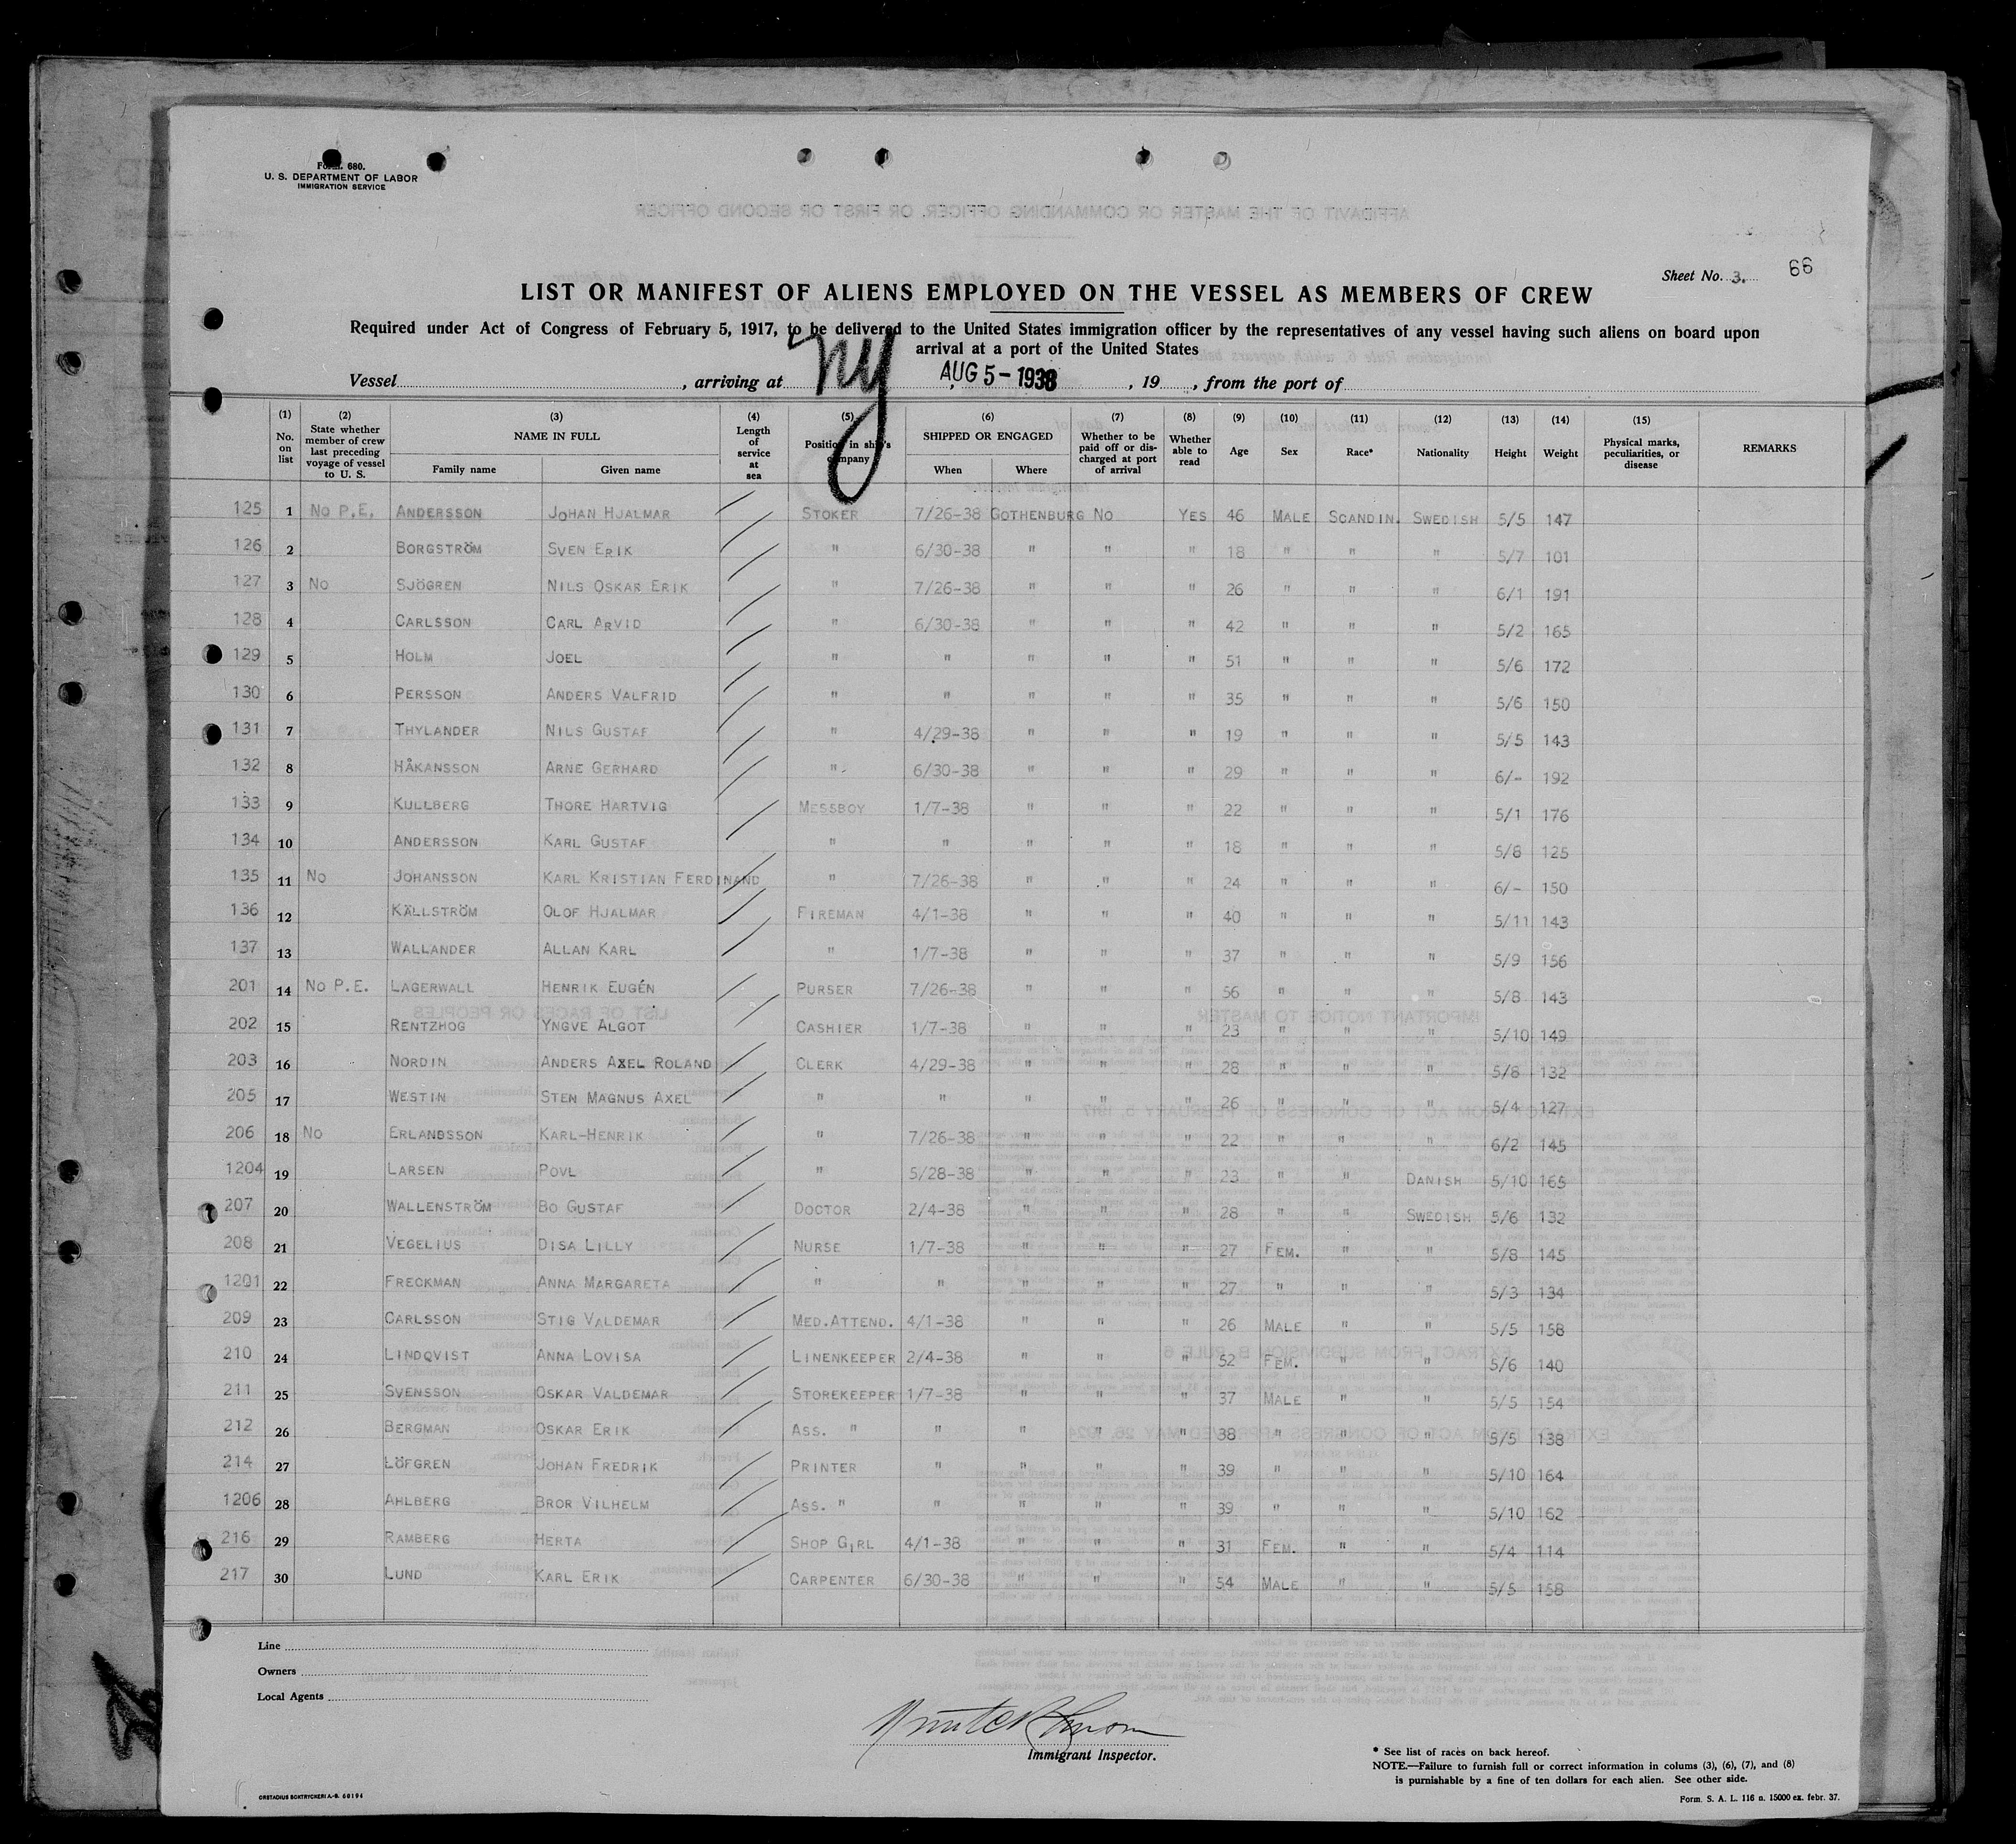 Form 680.
U. S. DEPARTMENT OF LABOR
IMMIGRATION SERVICE
Sheet No. 3. 66
LIST OR MANIFEST OF ALIENS EMPLOYED ON THE VESSEL AS MEMBERS OF CREW
Required under Act of Congress of February 5, 1917, to be delivered to the United States immigration officer by the representatives of any vessel having such aliens on board upon
arrival at a port of the United States
Vessel , arriving at NY , AUG 5 - 1938 , 19 , from the port of
(1) No. on list (2) State whether member of crew last preceding voyage of vessel to U. S. (3) NAME IN FULL Family name Given name (4) Length of service at sea (5) Position in ship's company (6) SHIPPED OR ENGAGED When Where (7) Whether to be paid off or discharged at port of arrival (8) Whether able to read (9) Age (10) Sex (11) Race* (12) Nationality (13) Height (14) Weight (15) Physical marks, peculiarities, or disease REMARKS
125 1 No P.E. ANDERSSON JOHAN HJALMAR STOKER 7/26-38 GOTHENBURG No YES 46 MALE SCANDIN. SWEDISH 5/5 147
126 2 BORGSTRÖM SVEN ERIK " 6/30-38 " " " 18 " " " 5/7 101
127 3 No SJÖGREN NILS OSKAR ERIK " 7/26-38 " " " 26 " " " 6/1 191
128 4 CARLSSON CARL ARVID " 6/30-38 " " " 42 " " " 5/2 165
129 5 HOLM JOEL " " " " " 51 " " " 5/6 172
130 6 PERSSON ANDERS VALFRID " " " " " 35 " " " 5/6 150
131 7 THYLANDER NILS GUSTAF " 4/29-38 " " " 19 " " " 5/5 143
132 8 HÅKANSSON ARNE GERHARD " 6/30-38 " " " 29 " " " 6/- 192
133 9 KULLBERG THORE HARTVIG MESSBOY 1/7-38 " " " 22 " " " 5/1 176
134 10 ANDERSSON KARL GUSTAF " " " " " 18 " " " 5/8 125
135 11 No JOHANSSON KARL KRISTIAN FERDINAND " 7/26-38 " " " 24 " " " 6/- 150
136 12 KÄLLSTRÖM OLOF HJALMAR FIREMAN 4/1-38 " " " 40 " " " 5/11 143
137 13 WALLANDER ALLAN KARL " 1/7-38 " " " 37 " " " 5/9 156
201 14 No P.E. LAGERWALL HENRIK EUGÉN PURSER 7/26-38 " " " 56 " " " 5/8 143
202 15 RENTZHOG YNGVE ALGOT CASHIER 1/7-38 " " " 23 " " " 5/10 149
203 16 NORDIN ANDERS AXEL ROLAND CLERK 4/29-38 " " " 28 " " " 5/8 132
205 17 WESTIN STEN MAGNUS AXEL " " " " " 26 " " " 5/4 127
206 18 No ERLANDSSON KARL-HENRIK " 7/26-38 " " " 22 " " " 6/2 145
1204 19 LARSEN POVL " 5/28-38 " " " 23 " " DANISH 5/10 165
207 20 WALLENSTRÖM BO GUSTAF DOCTOR 2/4-38 " " " 28 " " SWEDISH 5/6 132
208 21 VEGELIUS DISA LILLY NURSE 1/7-38 " " " 27 FEM. " " 5/8 145
1201 22 FRECKMAN ANNA MARGARETA " " " " " 27 " " " 5/3 134
209 23 CARLSSON STIG VALDEMAR MED.ATTEND. 4/1-38 " " " 26 MALE " " 5/5 158
210 24 LINDQVIST ANNA LOVISA LINENKEEPER 2/4-38 " " " 52 FEM. " " 5/6 140
211 25 SVENSSON OSKAR VALDEMAR STOREKEEPER 1/7-38 " " " 37 MALE " " 5/5 154
212 26 BERGMAN OSKAR ERIK ASS. " " " " " 38 " " " 5/5 138
214 27 LÖFGREN JOHAN FREDRIK PRINTER " " " " 39 " " " 5/10 164
1206 28 AHLBERG BROR VILHELM ASS. " " " " " 39 " " " 5/10 162
216 29 RAMBERG HERTA SHOP GIRL 4/1-38 " " " 31 FEM. " " 5/4 114
217 30 LUND KARL ERIK CARPENTER 6/30-38 " " " 54 MALE " " 5/5 158
Line
Owners
Local Agents
Immigrant Inspector.
* See list of races on back hereof.
NOTE.—Failure to furnish full or correct information in colums (3), (6), (7), and (8)
is punishable by a fine of ten dollars for each alien. See other side.
Form. S. A. L. 116 n. 15000 ex. febr. 37.